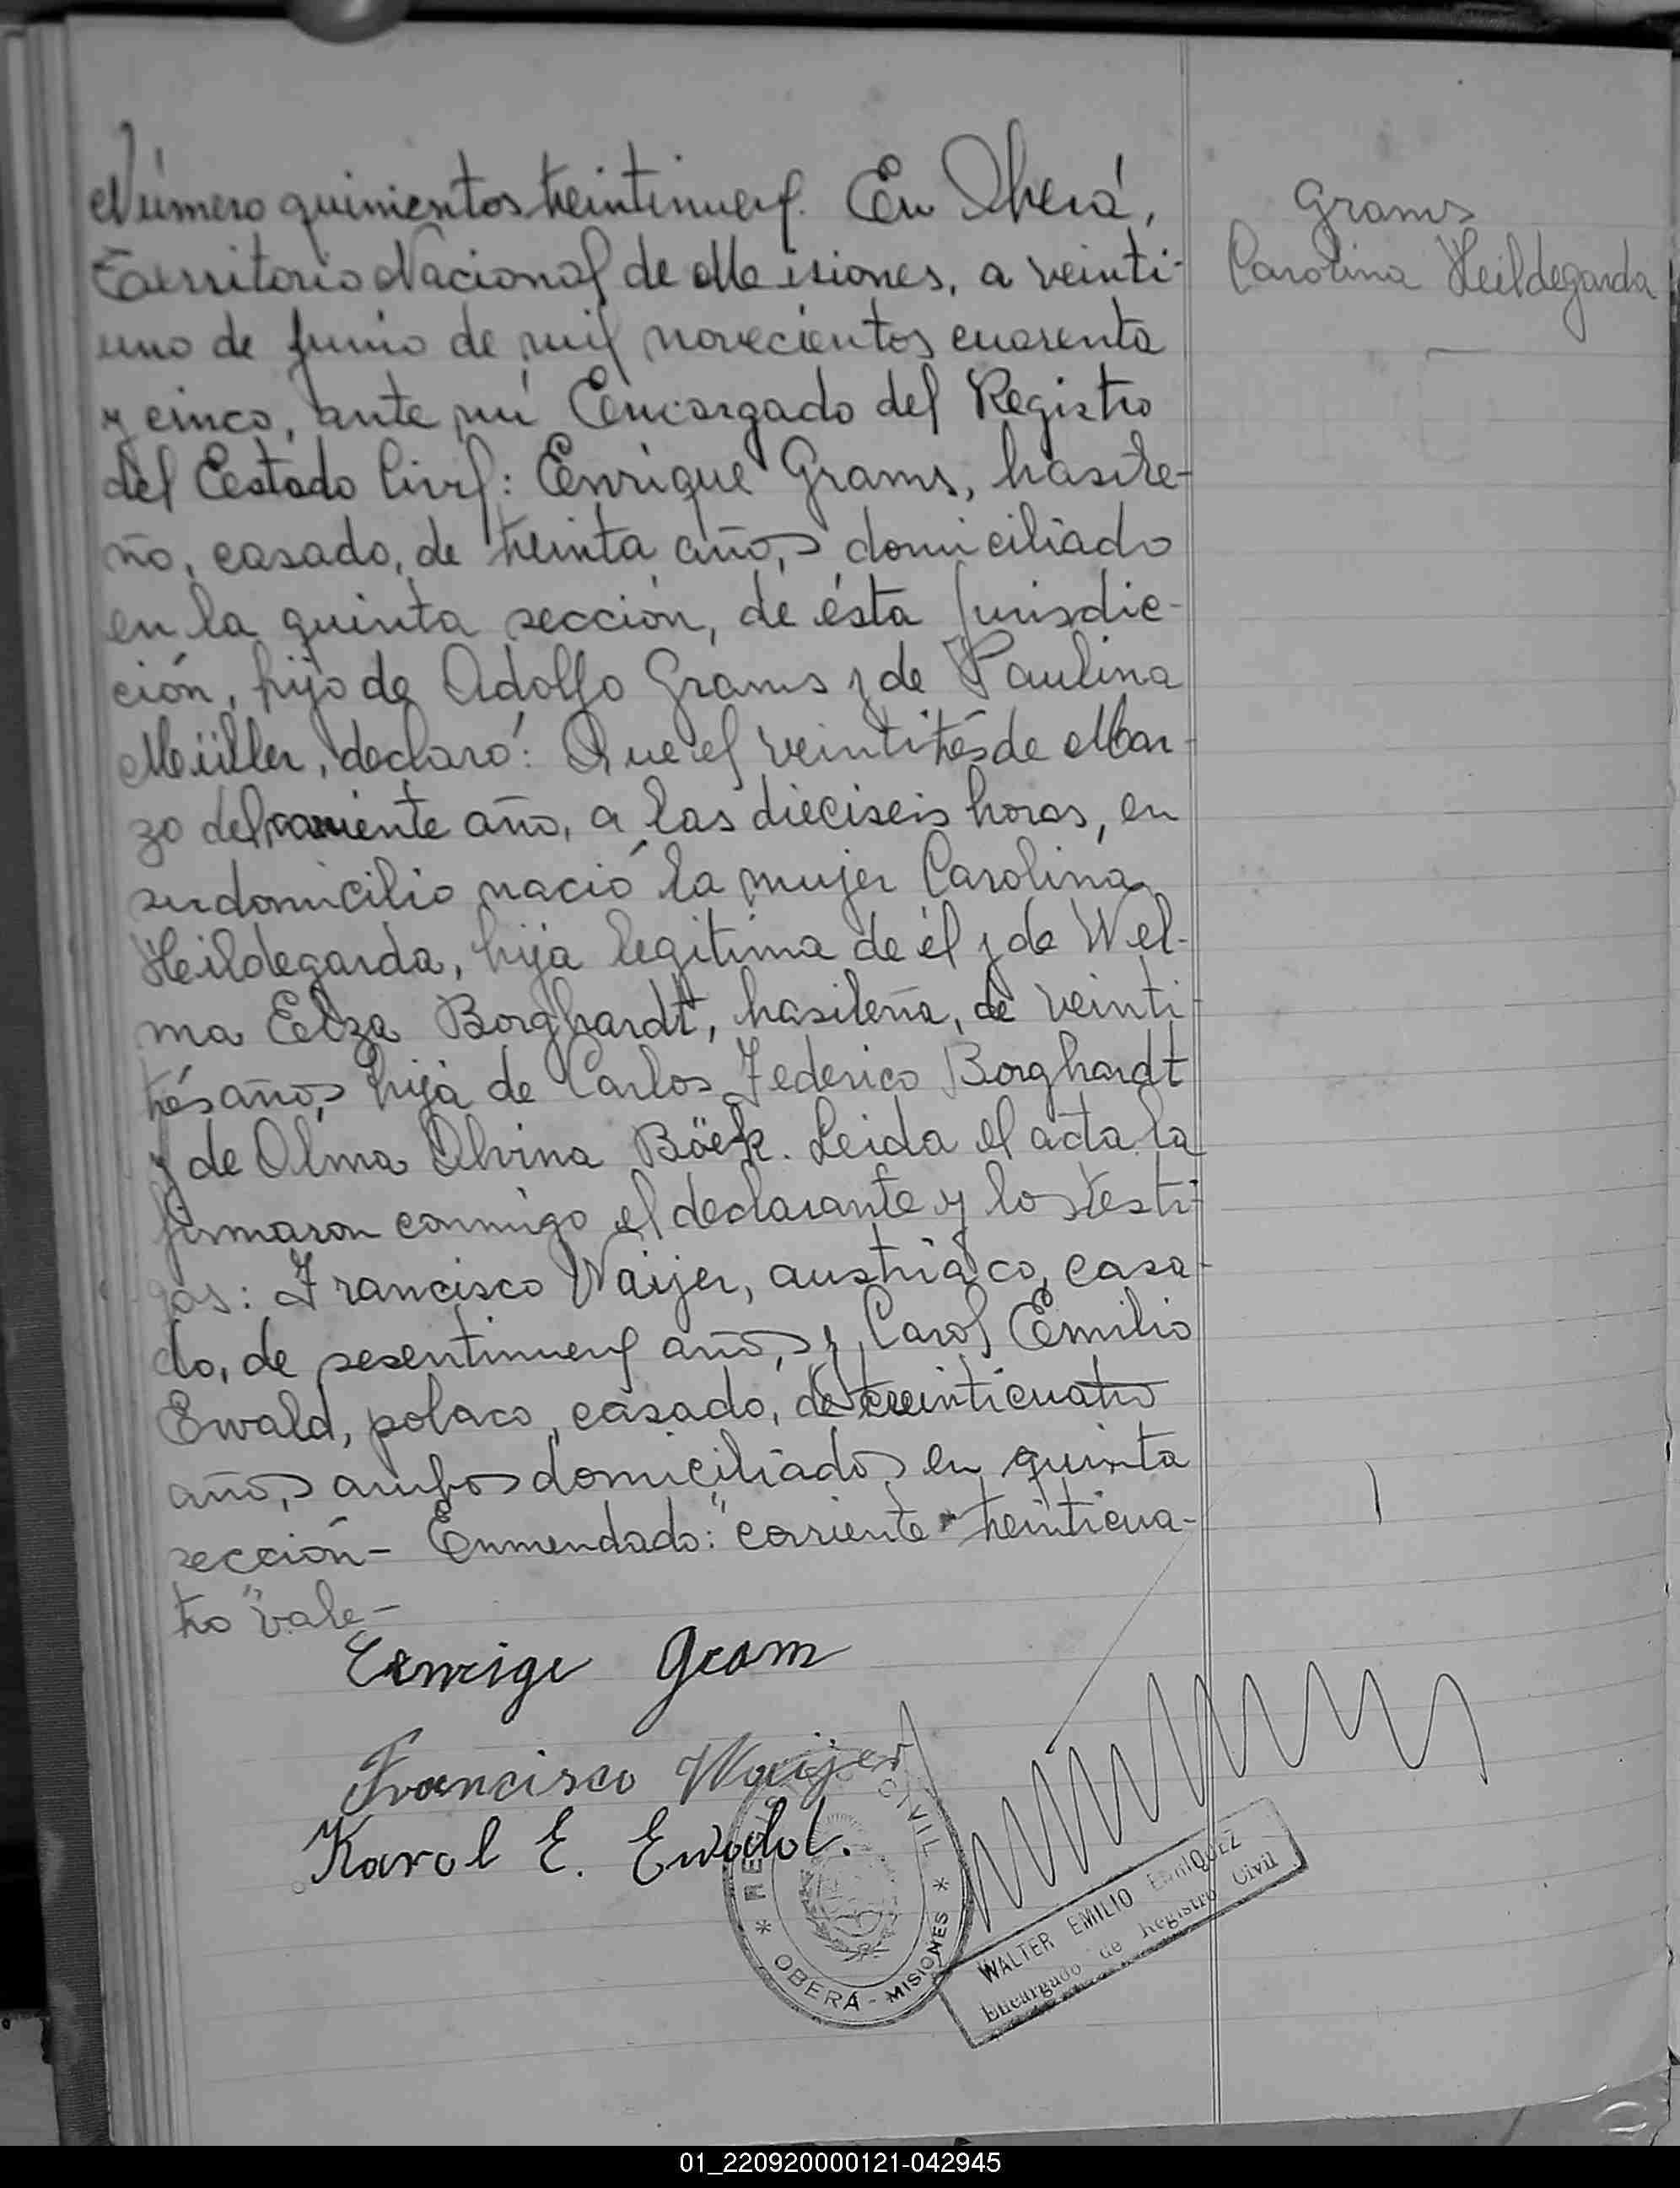 Número quinientos treintinueve. En Oberá,
Territorio Nacional de Misiones, a veinti-
uno de Junio de mil novecientos cuarenta
y cinco, ante mí Encargado del Registro
del Estado Civil: Enrique Grams, brasile-
ño, casado, de treinta años, domiciliado
en la quinta sección, de ésta Jurisdic-
ción, hijo de Adolfo Grams y de Paulina
Müller, declaró: Que el veintitrés de Mar-
zo del corriente año, a las dieciseis horas, en
su domicilio nació la mujer Carolina
Heildegarda, hija legítima de él y de Wel-
ma Elza Borghardt, brasileña, de veinti
trés años, hija de Carlos Federico Borghardt
y de Olma Olvina Böek. Leida el acta la
firmaron conmigo el declarante y los testi-
gos: Francisco Waijer, austriaco, casa-
do, de sesentinueve años, y Carol Emilio
Ewald, polaco, casado, de treinticuatro
años, ambos domiciliados en quinta
sección- Enmendado: "corriente - treinticua-
tro" vale-
Grams
Carolina Heildegarda
Enrige Gram
Francisco Waijer
Karol E. Ewald.
REGISTRO CIVIL
* OBERÁ - MISIONES *
WALTER EMILIO ENRIQUEZ
Encargado de Registro Civil
01_220920000121-042945